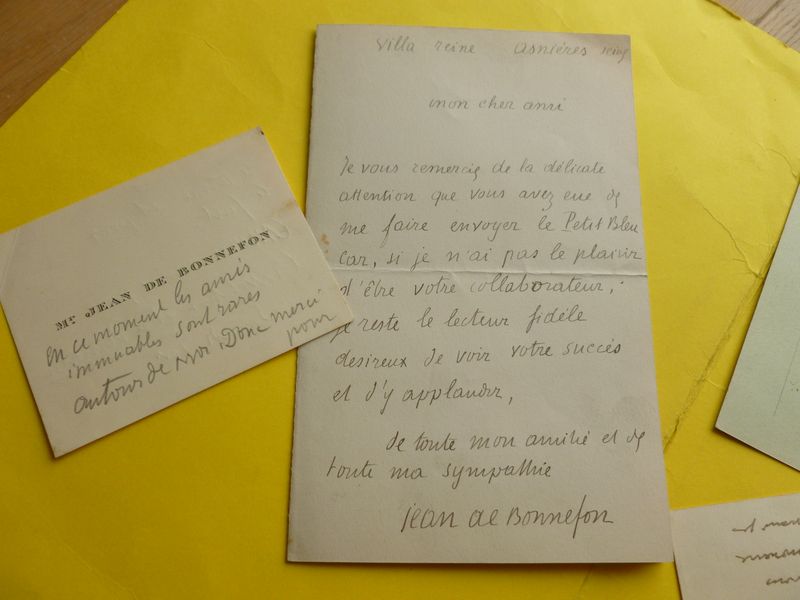 Villa reine Asnières seine
mon cher ami
Je vous remercie de la délicate
attention que vous avez eue de
me faire envoyer le Petit Bleu
Car, si je n'ai pas le plaisir
d'être votre collaborateur,
je reste le lecteur fidèle
desireux de voir votre succès
et d'y applaudir,
de toute mon amitié et de
toute ma sympathie
Jean de Bonnefon
Mr JEAN DE BONNEFON
en ce moment les amis
immuables sont rares
autour de moi. Donc merci
pour